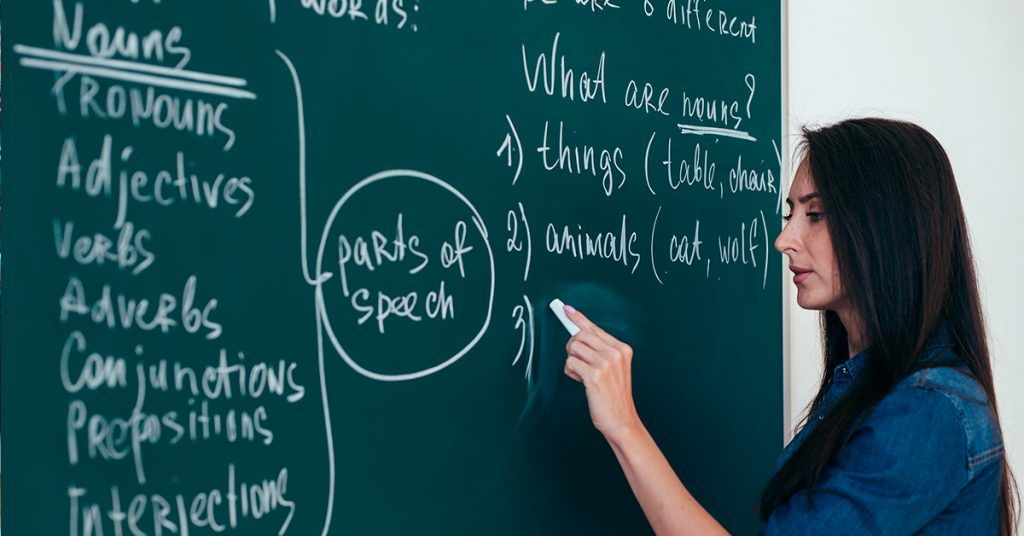 words:
Nouns
Pronouns
Adjectives
Verbs
Adverbs
Conjunctions
Prepositions
Interjections
parts of
speech
different
What are nouns?
1) things (table, chair)
2) animals (cat, wolf)
3)